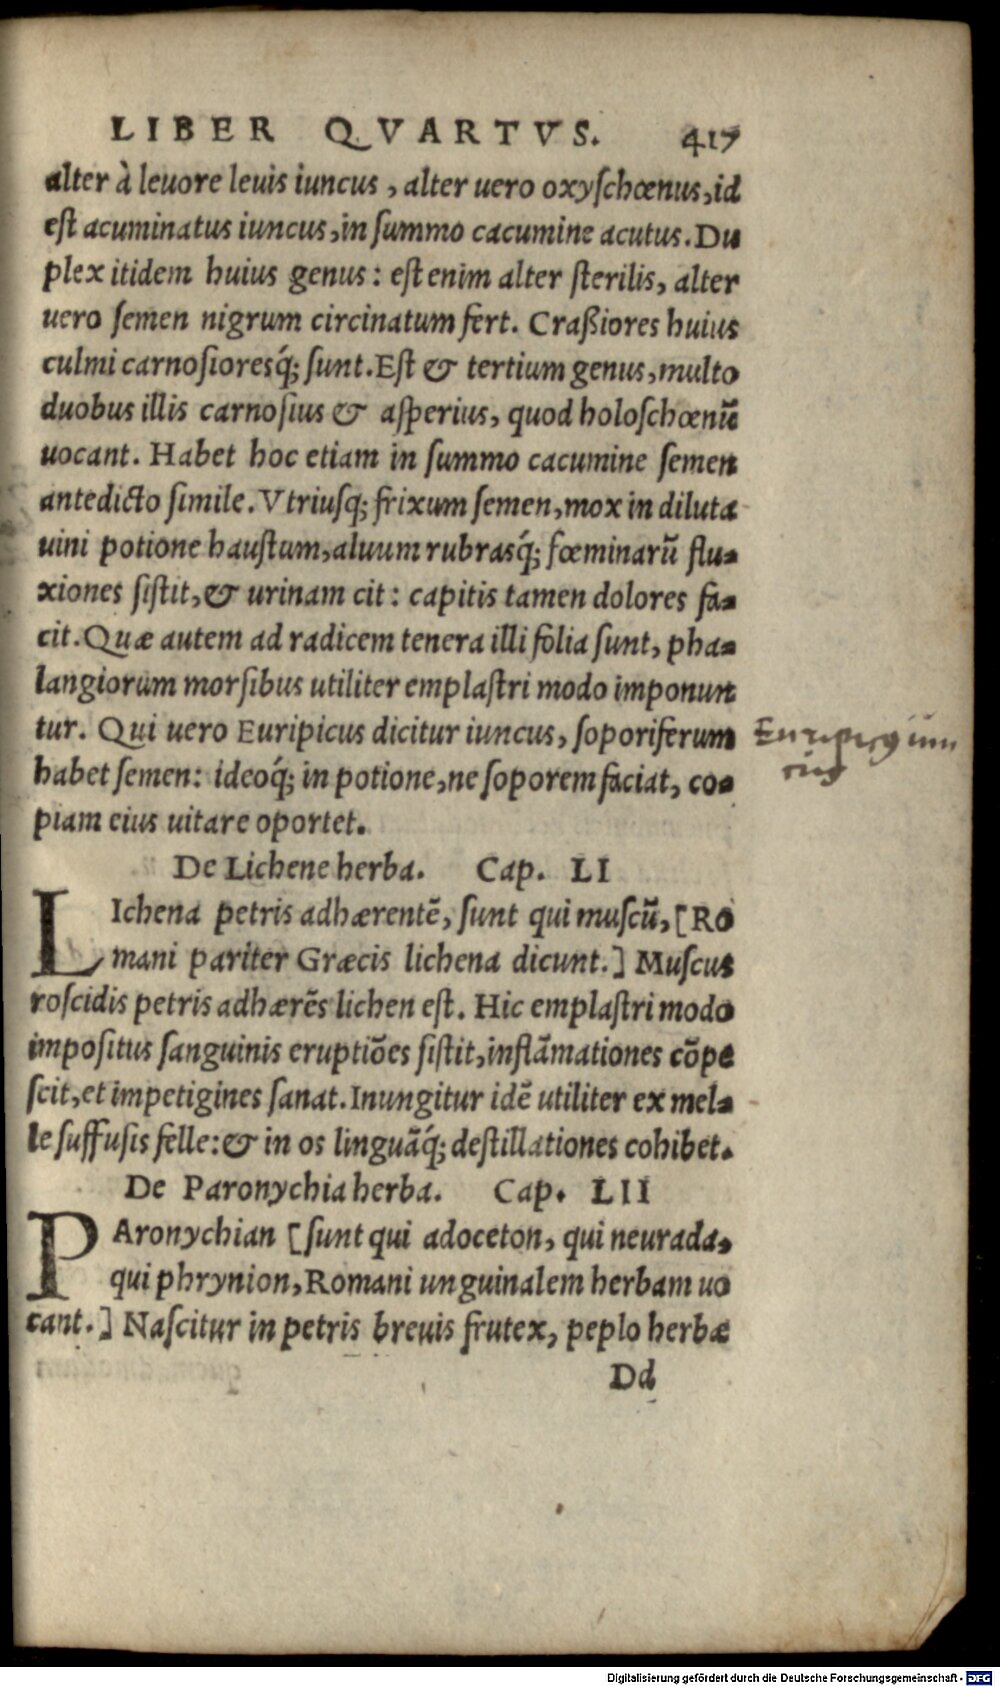 LIBER QVARTVS. 417
alter à leuore leuis iuncus, alter uero oxyſchœnus, id
eſt acuminatus iuncus, in ſummo cacumine acutus. Du
plex itidem huius genus: eſt enim alter ſterilis, alter
uero ſemen nigrum circinatum fert. Craßiores huius
culmi carnoſioresq́; ſunt. Eſt & tertium genus, multo
duobus illis carnoſius & aſperius, quod holoſchœnū
uocant. Habet hoc etiam in ſummo cacumine ſemen
antedicto ſimile. Vtriuſq; frixum ſemen, mox in diluta
uini potione hauſtum, aluum rubrasq́; fœminarū flu-
xiones ſiſtit, & urinam cit: capitis tamen dolores fa-
cit. Quæ autem ad radicem tenera illi folia ſunt, pha-
langiorum morſibus utiliter emplaſtri modo imponun
tur. Qui uero Euripicus dicitur iuncus, ſoporiferum
habet ſemen: ideoq́; in potione, ne ſoporem faciat, co-
piam eius uitare oportet.
Euripicus iun
cus
De Lichene herba. Cap. LI
LIchena petris adhærentē, ſunt qui muſcū, [Ro
mani pariter Græcis lichena dicunt.] Muſcus
roſcidis petris adhærēs lichen eſt. Hic emplaſtri modo
impoſitus ſanguinis eruptiōes ſiſtit, inflāmationes cōpe
ſcit, et impetigines ſanat. Inungitur idē utiliter ex mel-
le ſuffuſis felle: & in os linguāq́; deſtillationes cohibet.
De Paronychia herba. Cap. LII
PAronychian [ſunt qui adoceton, qui neurada,
qui phrynion, Romani unguinalem herbam uo
cant.] Naſcitur in petris breuis frutex, peplo herbæ
Dd
Digitalisierung gefördert durch die Deutsche Forschungsgemeinschaft - DFG